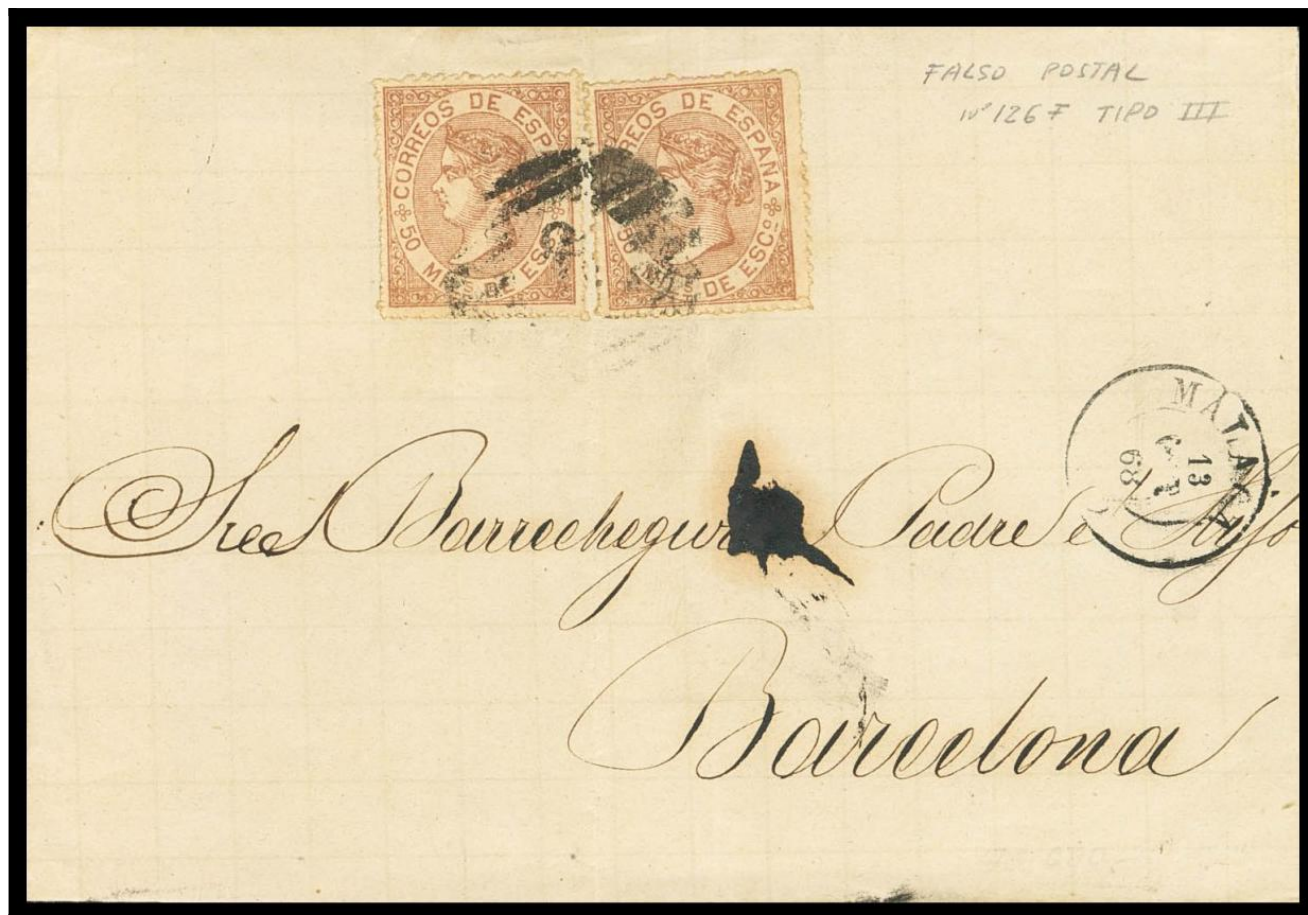 FALSO POSTAL
Nº 126F TIPO III
CORREOS DE ESP
50 MILS DE ESC
CORREOS DE ESPAÑA
50 MILS DE ESCº
MALAGA
13
68
Sres Barrechegur Padre e Hijo
Barcelona